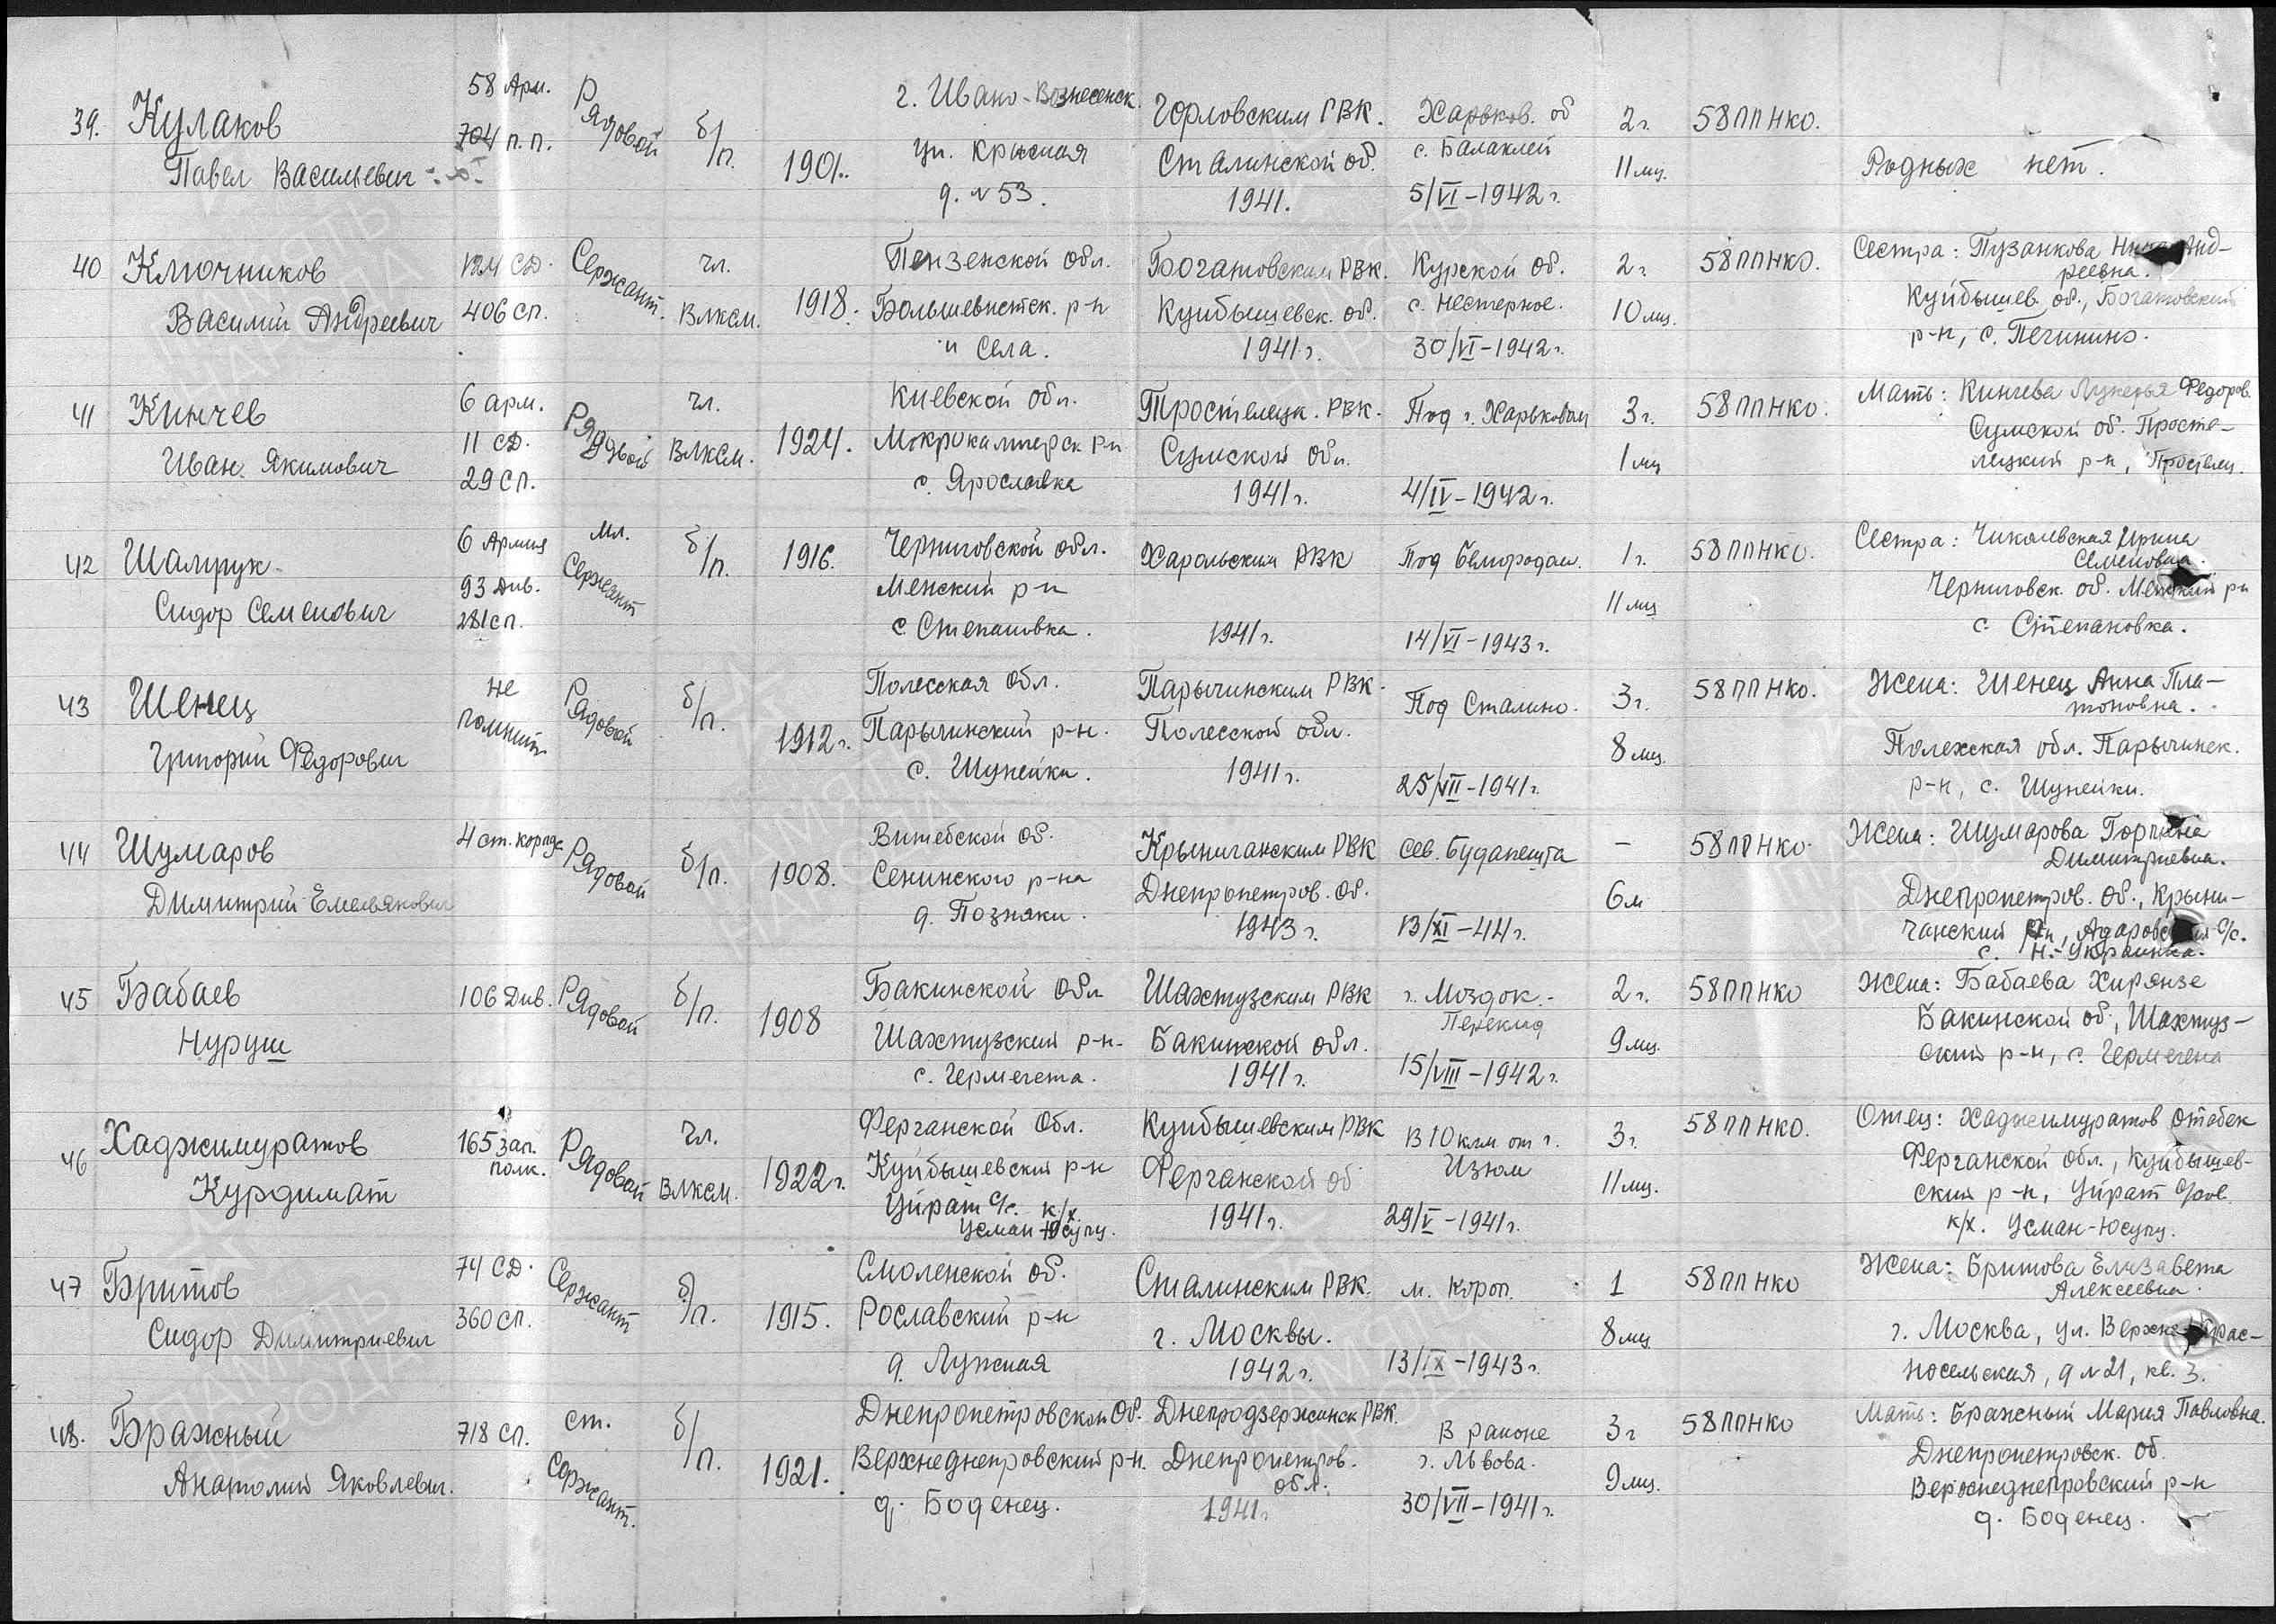 39. Кулаков
Павел Васильевич
58 Арм.
704 п.п.
Рядовой
б/п.
1901.
г. Ивано-Вознесенск.
ул. Красная
д. № 53.
Горловским РВК.
Сталинской об.
1941.
Харьков. об
с. Балаклей
5/VI-1942 г.
2 г.
11 мц.
58 ППНКО.
Родных нет.
40 Ключников
Василий Андреевич
124 СД.
406 сп.
Сержант.
чл.
ВЛКСМ.
1918.
Пензенской обл.
Большевистск. р-н
и села.
Богатовским РВК.
Куйбышевск. об.
1941 г.
Курской об.
с. Нестерное.
30/VI-1942 г.
2 г.
10 мц.
58 ППНКО.
Сестра: Пузанкова Анд-
реевна.
Куйбышев. об., Богатовский
р-н, с. Печинино.
41 Кинчев
Иван Якимович
6 арм.
11 СД.
29 СП.
Рядовой
чл.
ВЛКСМ.
1924.
Киевской обл.
р-н
с. Ярославка
Тростелецк. РВК.
Сумской обл.
1941 г.
Под г. Харьковом
4/IV-1942 г.
3 г.
1 мц
58 ППНКО.
Мать: Кинчева Лукерья Федоров.
Сумской об. Тросте-
лецкий р-н, Тростлец.
42 Шалрук
Сидор Семенович
6 Армия
93 Див.
281 сп.
Мл.
Сержант
б/п.
1916.
Черниговской обл.
Менский р-н
с Степановка.
Харольским РВК
1941 г.
Под Белгородом.
14/VI-1943 г.
1 г.
11 мц
58 ППНКО.
Сестра: Чиколевская Ирина
Семеновна.
Черниговск. об. Менский р-н
с. Степановка.
43 Шенец
Григорий Федорович
не
помнит.
Рядовой
б/п.
1912 г.
Полесская обл.
Парычинский р-н.
с. Шупейки.
Парычинским РВК.
Полесской обл.
1941 г.
Под Сталино.
25/VII-1941 г.
3 г.
8 мц.
58 ППНКО.
Жена: Шенец Анна Пла-
тоновна.
Полежская обл. Парычинск.
р-н, с. Шупейки.
44 Шумаров
Димитрий Емельянович
4 ст. корпус
Рядовой
б/п.
1908.
Витебской об.
Сенинского р-на
д. Позняки.
Крыничанским РВК
Днепропетров. об.
1943 г.
Сев. Будапешта
13/XI-44 г.
-
6 м
58 ППНКО.
Жена: Шумарова Горпина
Димитриевна.
Днепропетров. об., Крыни-
чанский р-н, с/с.
с. Н.-Украинка.
45 Бабаев
Нуруш
106 Див.
Рядовой
б/п.
1908
Бакинской обл
Шахтузский р-н.
с. Гермечета.
Шахтузским РВК
Бакинской обл.
1941 г.
г. Моздок.-
Перекид
15/VIII-1942 г.
2 г.
9 мц.
58 ППНКО
Жена: Бабаева Хирянзе
Бакинской об, Шахтуз-
ский р-н, с. Гермечена
46 Хаджимуратов
Курдимат
165 зап.
полк.
Рядовой
чл.
ВЛКСМ.
1922 г.
Ферганской обл.
Куйбышевский р-н
Уйрат с/с. к/х.
Усман Юсупу.
Куйбышевским РВК
Ферганской об
1941 г.
В 10 клм от г.
Изюм
29/V-1941 г.
3 г.
11 мц.
58 ППНКО.
Отец: Хаджимуратов Отабек
Ферганской обл., Куйбышев-
ский р-н, Уйрат с/сов.
к/х. Усман-Юсупу.
47 Бритов
Сидор Димитриевич
74 СД.
360 сп.
Сержант
б/п.
1915.
Смоленской об.
Рославский р-н
д. Лужная
Сталинским РВК.
г. Москвы.
1942 г.
м. Короп.
13/IX-1943 г.
1
8 мц
58 ППНКО
Жена: Бритова Елизавета
Алексеевна.
г. Москва, ул. Верхне-Крас-
носельская, д № 21, кв. 3.
48. Бражный
Анатолий Яковлевич.
718 Сп.
ст.
Сержант.
б/п.
1921.
Днепропетровской об.
Верхнеднепровский р-н.
д. Боденец.
Днепродзержинск РВК.
Днепропетров.
обл.
1941 г
В районе
г. Львова.
30/VII-1941 г.
3 г
9 мц.
58 ППНКО
Мать: Бражный Мария Павловна.
Днепропетровск. об.
Верхнеднепровский р-н
д. Боденец.
ПАМЯТЬ
НАРОДА